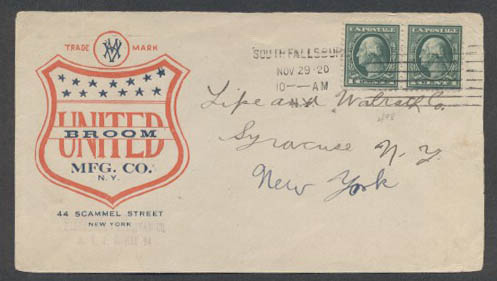 TRADE MARK
UNITED
BROOM
MFG. CO.
N.Y.
44 SCAMMEL STREET
NEW YORK
SOUTH FALLSBURG
NOV 29 20
10 - AM
N.Y.
U.S. POSTAGE
U.S. POSTAGE
Lipe and Walrath Co.
Syracuse N.Y.
New York